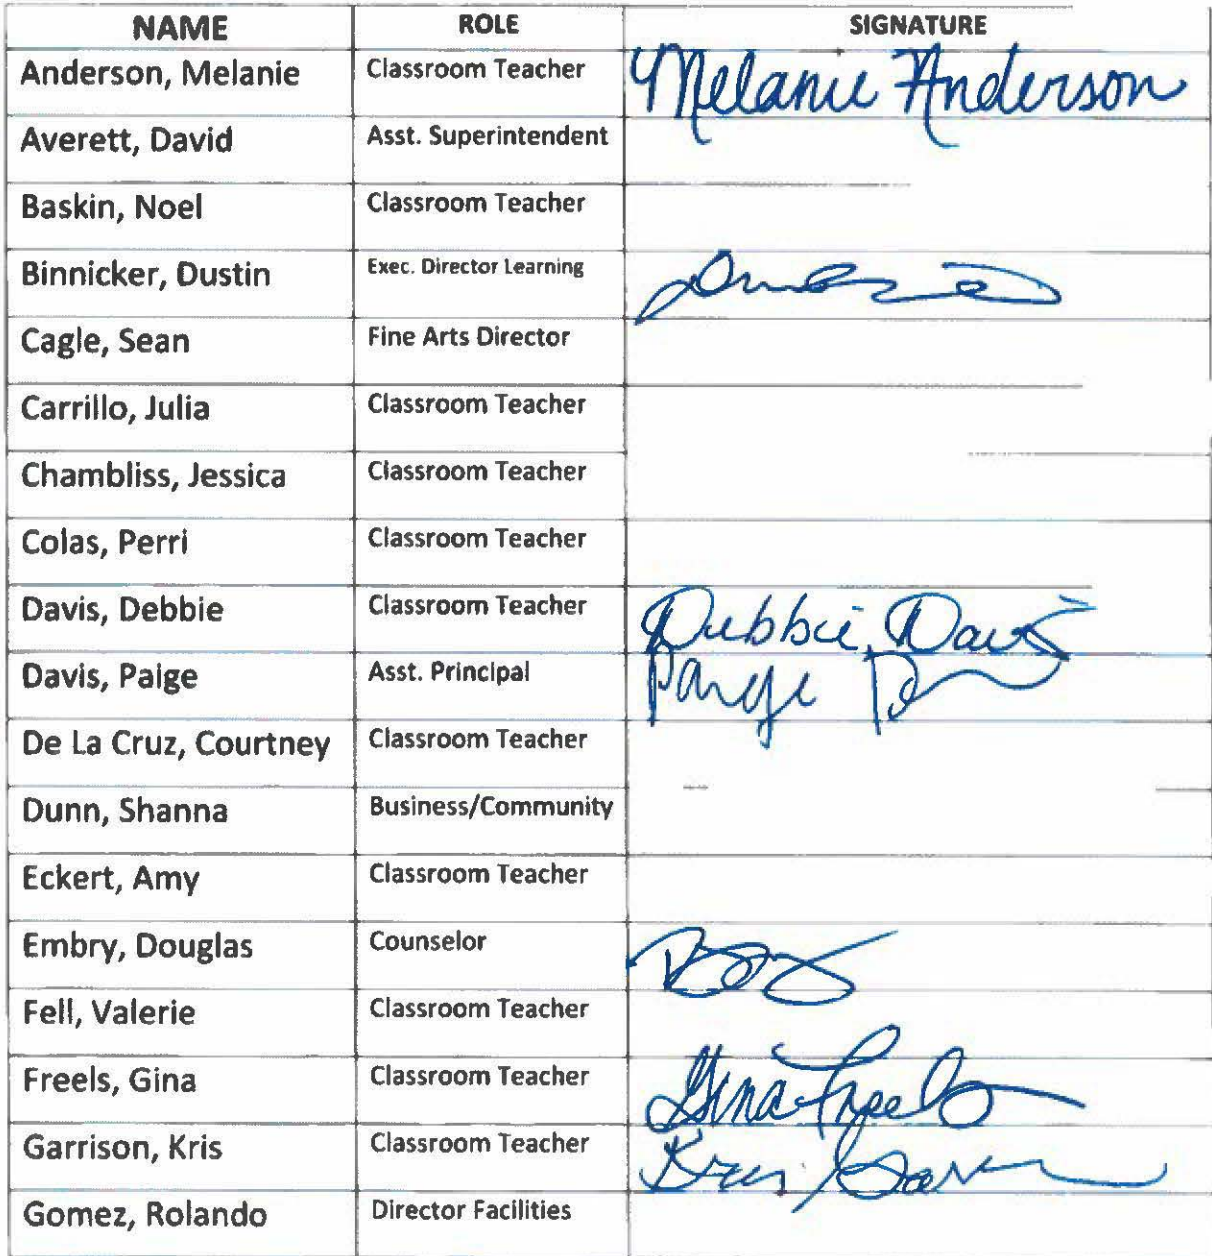 NAME ROLE SIGNATURE
Anderson, Melanie Classroom Teacher Melanie Anderson
Averett, David Asst. Superintendent
Baskin, Noel Classroom Teacher
Binnicker, Dustin Exec. Director Learning
Cagle, Sean Fine Arts Director
Carrillo, Julia Classroom Teacher
Chambliss, Jessica Classroom Teacher
Colas, Perri Classroom Teacher
Davis, Debbie Classroom Teacher Debbie Davis
Davis, Paige Asst. Principal Paige
De La Cruz, Courtney Classroom Teacher
Dunn, Shanna Business/Community
Eckert, Amy Classroom Teacher
Embry, Douglas Counselor
Fell, Valerie Classroom Teacher
Freels, Gina Classroom Teacher Gina Freels
Garrison, Kris Classroom Teacher Kris
Gomez, Rolando Director Facilities